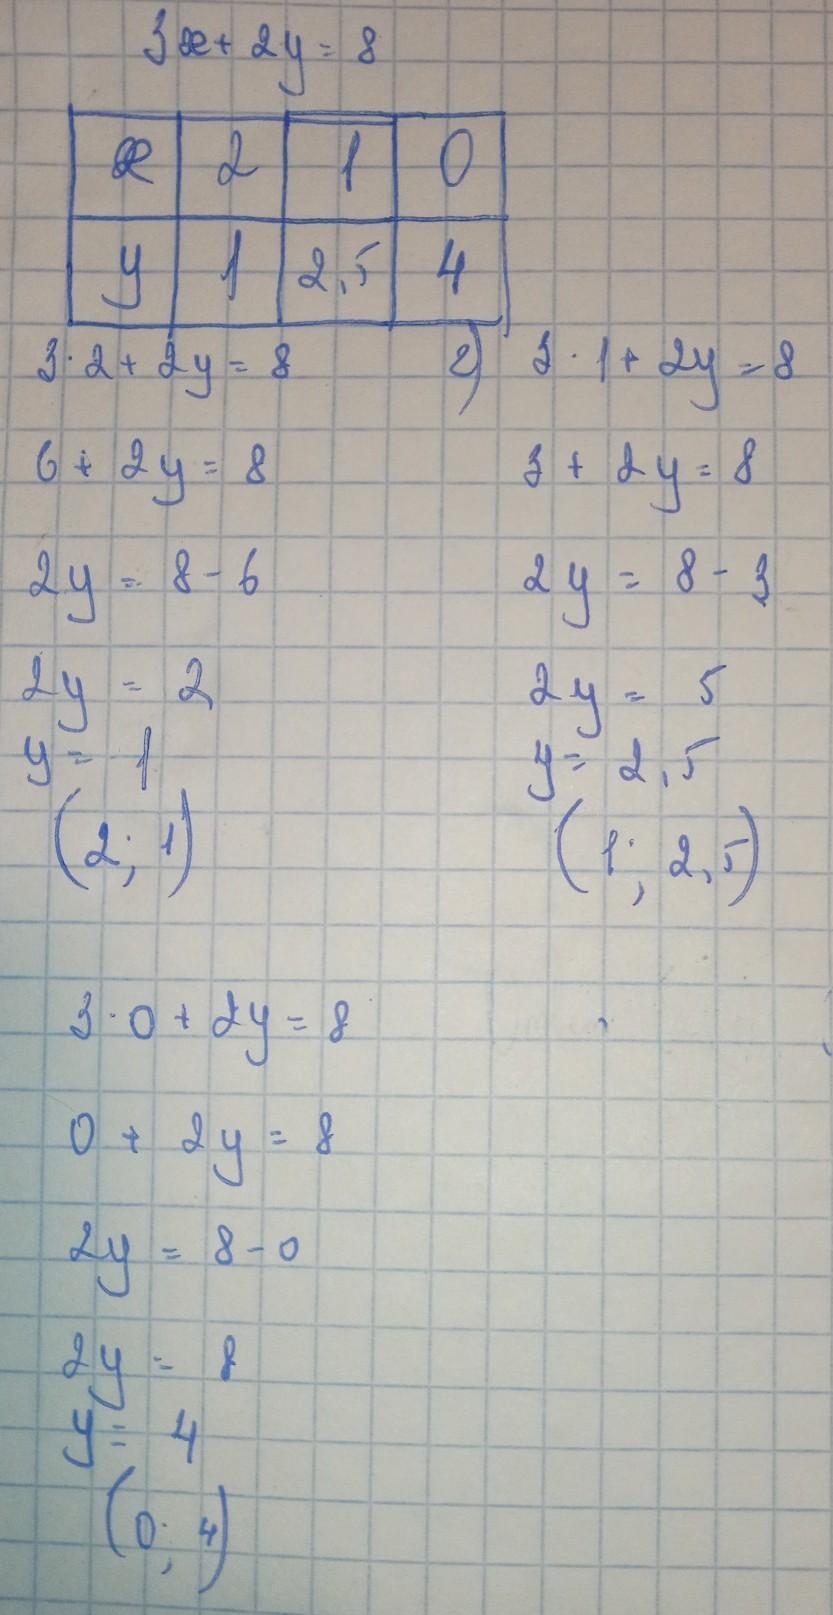 3x + 2y = 8
x 2 1 0
y 1 2,5 4
3·2 + 2y = 8
6 + 2y = 8
2y = 8 - 6
2y = 2
y = 1
(2; 1)
2) 3·1 + 2y = 8
3 + 2y = 8
2y = 8 - 3
2y = 5
y = 2,5
(1; 2,5)
3·0 + 2y = 8
0 + 2y = 8
2y = 8 - 0
2y = 8
y = 4
(0; 4)